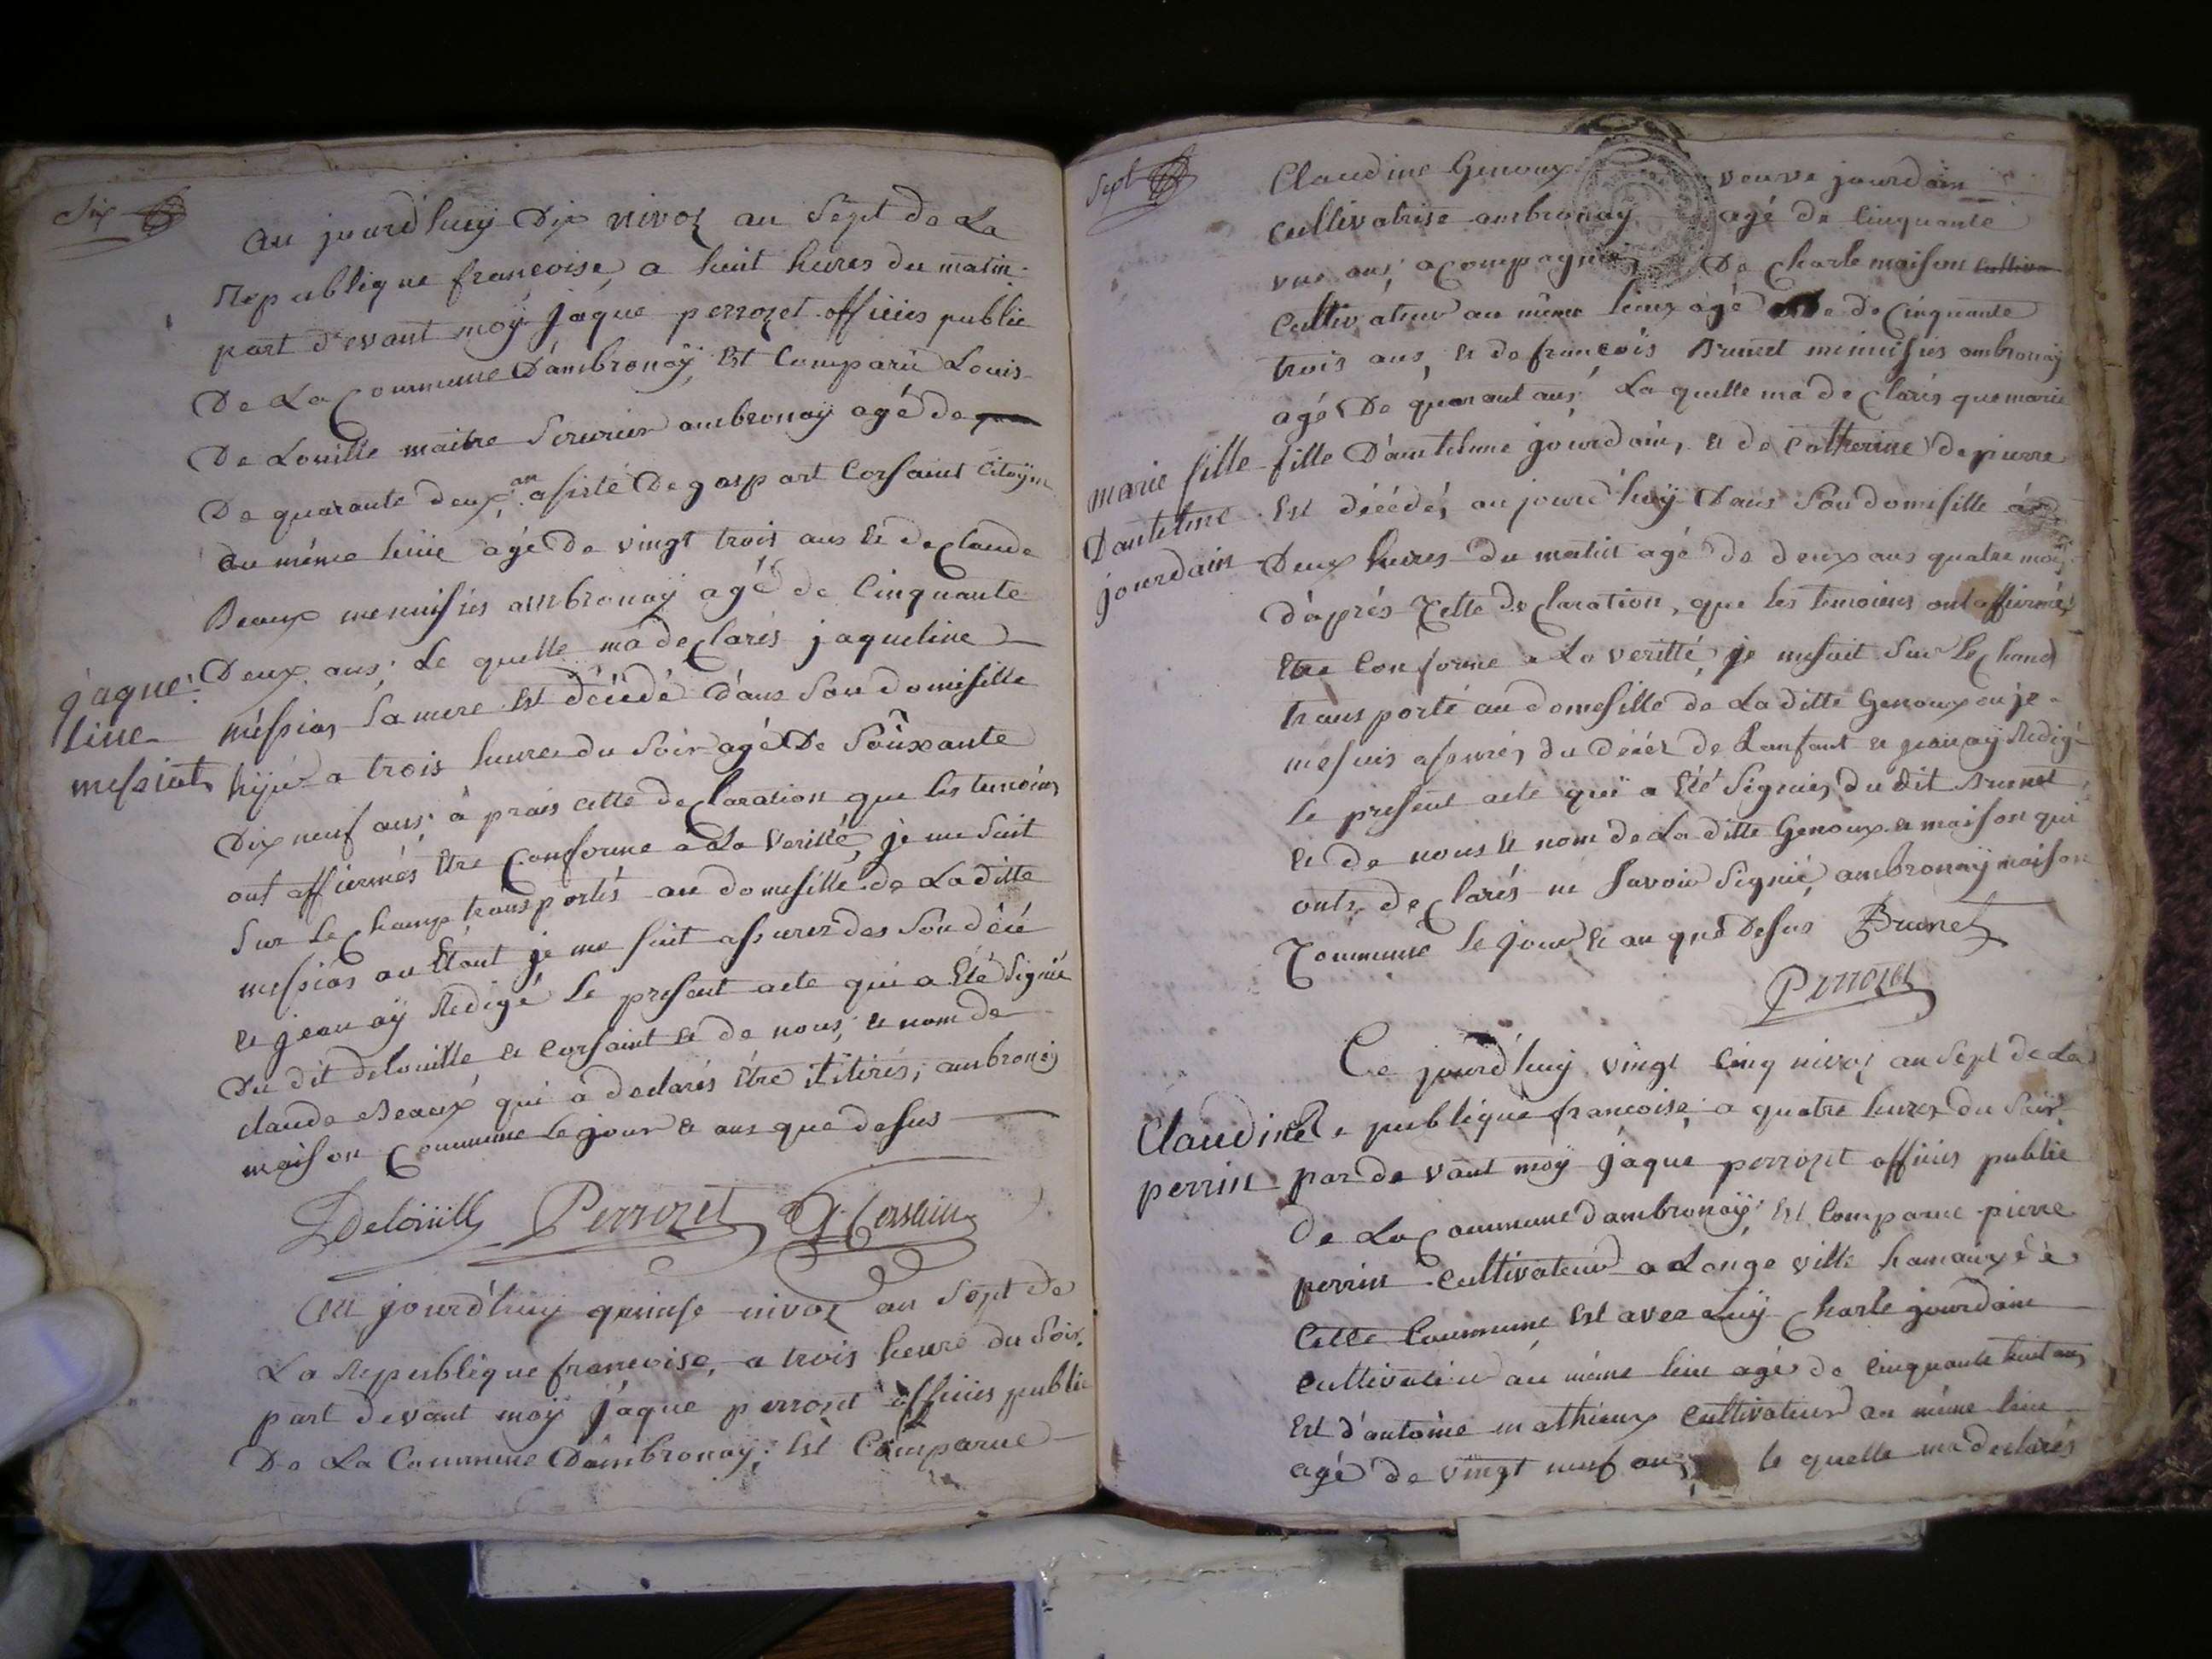 Six
au jourd'huy Dix nivoz an Sept de La
Republique francoise, a huit hures du matin
part devant moÿ jaque perrozet officies public
De La Commune D'ambronaÿ, Est Comparu Louis
De Louille maitre Serurier ambronaÿ agé de
De quarante deux an asisté De gaspart Corsaint Citoÿin
du même luie agé de vingt trois ans Et de Claude
Beaux menuisies ambronaÿ agé de Cinquante
Deux ans; Le quelle ma declarés jaqueline
jaque:
line
messiat
méssias Sa mere Est décédé dans Son domisille
hÿer a trois heures du Soir agé De Soixante
Dix neuf ans; à prais cette declaration que les temoins
ont affiermés Etre Conforme à La Verité, je me Suit
Sur Le Champ transportés au domesille de La ditte
messias ou Etant je me suit assurer des Son décé
Et jean aÿ Redigé Le present acte qui a Eté Signié
Du dit delouille Et Corsaint Et de nous, Et nom de
claude Beaux qui a declarés Etre ilitirés; ambronaÿ
maison Commune Le jour Et ans que desus
Delouille Perrozet G Corssain
Au jourd'huy quinse nivoz an Sept de
La Republique francoise, a trois heure du Soir
part devant moÿ jaque perrozet officies public
De La Commune D'ambronaÿ; Est Comparue
Sept
Claudine Genoux veuve jourdain
Cultivatrise ambronaÿ agé de Cinquante
une ans, acompagnié De Charle maison
Cultivateur au même lieux agé de Cinquante
trois ans, Et de françois Brunet menuisies ambronaÿ
agé De quarant ans; La quelle ma declarés que marie
marie fille
D'antelme
jourdain
fille D'antelme jourdain, Et de Catherine depierre
Est décédé, au jourd'huÿ Dans Son domisille à
Deux hures du matin agé de deux ans quatre mois
d'après Cette declaration, que les temoins ont affiermés
Etre Conforme a La veritté, je mesuit Sur Le Chand
transporté au domesille de La ditte Genoux ou je
mesuis assurés du décés de Lanfant Et jean aÿ Redigé
Le present acte qui a Eté Signiés du dit Brunet
Et de nous Et nom de La ditte Genoux Et maison qui
onts declarés ne Savoir Signié, ambronaÿ maison
Commune Le jour Et an que Desus Brunet
Perrozet
Ce jourd'huy vingt Cinq nivoz an Sept de La
Claudine
perrin
Re publique francoise; a quatre hures du Soir
par de vant moÿ jaque perrozet officies public
de La Commune d'ambronaÿ; Est Comparue pierre
perrin Cultivateur a Longe ville hamaux de
Cette Commune Est avec Luÿ Charle jourdain
Cultivateur au même lieu agé de Cinquante huit ans
Est d'antoine mathieux Cultivateur au même lieu
agé de vingt neuf ans, le quelle ma declarés